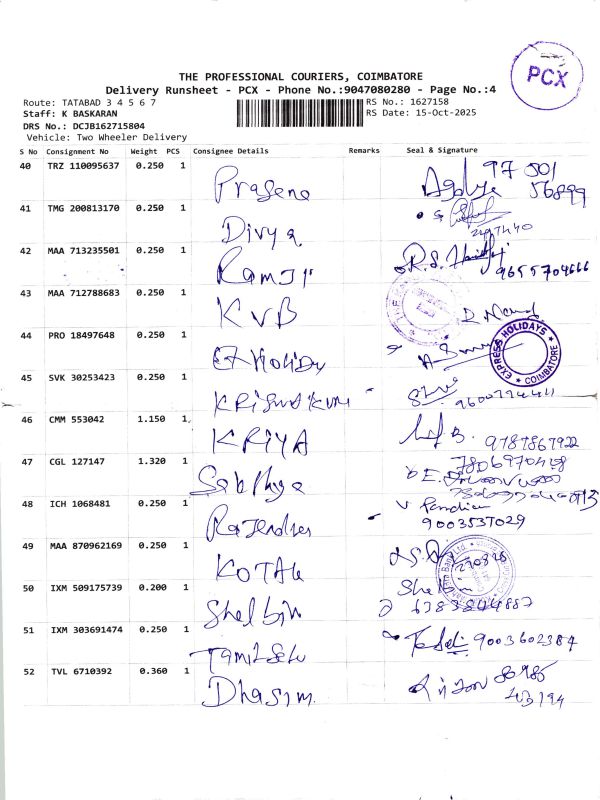 PCX
THE PROFESSIONAL COURIERS, COIMBATORE
Delivery Runsheet - PCX - Phone No.:9047080280 - Page No.:4
Route: TATABAD 3 4 5 6 7
RS No.: 1627158
Staff: K BASKARAN
RS Date: 15-Oct-2025
DRS No.: DCJB162715804
Vehicle: Two Wheeler Delivery
S No Consignment No Weight PCS Consignee Details Remarks Seal & Signature
40 TRZ 110095637 0.250 1 Prasena 97 501 56899
41 TMG 200813170 0.250 1 Divya
42 MAA 713235501 0.250 1 Ramji R.S. 9655704666
43 MAA 712788683 0.250 1 KVB
44 PRO 18497648 0.250 1 EX Holiday EXPRESS HOLIDAYS COIMBATORE
45 SVK 30253423 0.250 1
46 CMM 553042 1.150 1 KRIYA 9787867922
47 CGL 127147 1.320 1 Sabthya 7806970458
48 ICH 1068481 0.250 1 Rajendran V Pandian 9003537029
49 MAA 870962169 0.250 1 KOTAK
50 IXM 509175739 0.200 1 Shelbin 6383844887
51 IXM 303691474 0.250 1 Tamilselv 9003602384
52 TVL 6710392 0.360 1 Dhasim